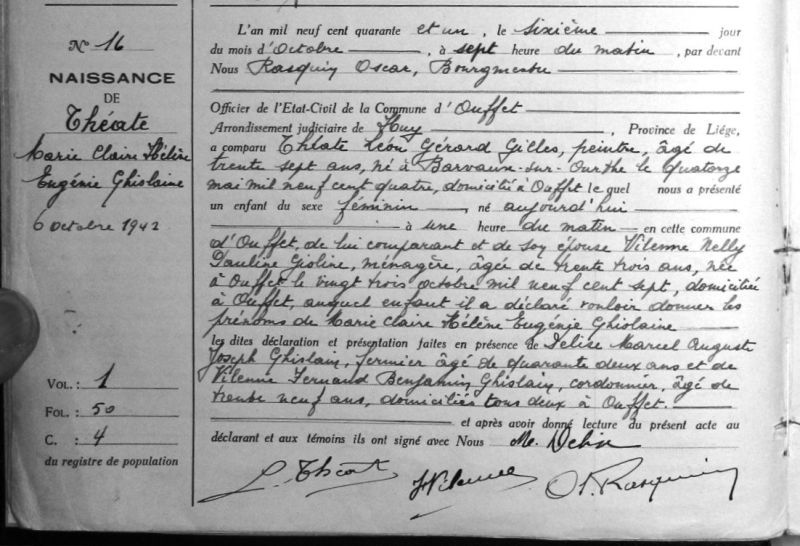 No 16
NAISSANCE
DE
Théate
Marie Claire Hélène
Eugénie Ghislaine
6 octobre 1942
VOL. : 1
FOL. : 50
C. : 4
du registre de population
L'an mil neuf cent quarante et un, le sixième jour
du mois d'Octobre, à sept heure du matin, par devant
Nous Rasquin Oscar, Bourgmestre
Officier de l'Etat-Civil de la Commune d'Ouffet
Arrondissement judiciaire de Huy, Province de Liége,
a comparu Théate Léon Gérard Gilles, peintre, âgé de
trente sept ans, né à Barvaux-sur-Ourthe le quatorze
mai mil neuf cent quatre, domicilié à Ouffet le quel nous a présenté
un enfant du sexe féminin, né aujourd'hui
à une heure du matin en cette commune
d'Ouffet, de lui comparant et de son épouse Vilenne Nelly
Pauline Gisline, ménagère, âgée de trente trois ans, née
à Ouffet le vingt trois octobre mil neuf cent sept, domiciliée
à Ouffet, auquel enfant il a déclaré vouloir donner les
prénoms de Marie Claire Hélène Eugénie Ghislaine
les dites déclaration et présentation faites en présence de Delise Marcel Auguste
Joseph Ghislain, fermier âgé de quarante deux ans et de
Vilenne Fernand Benjamin Ghislain, cordonnier, âgé de
trente neuf ans, domiciliés tous deux à Ouffet.
et après avoir donné lecture du présent acte au
déclarant et aux témoins ils ont signé avec Nous
L. Théate Vilenne O. Rasquin